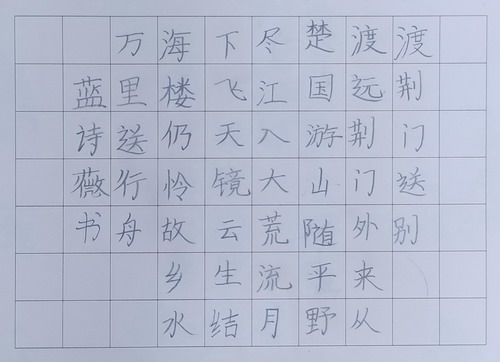 渡荆门送别
渡远荆门外来从
楚国游山随平野
尽江入大荒流月
下飞天镜云生结
海楼仍怜故乡水
万里送行舟
蓝诗薇书